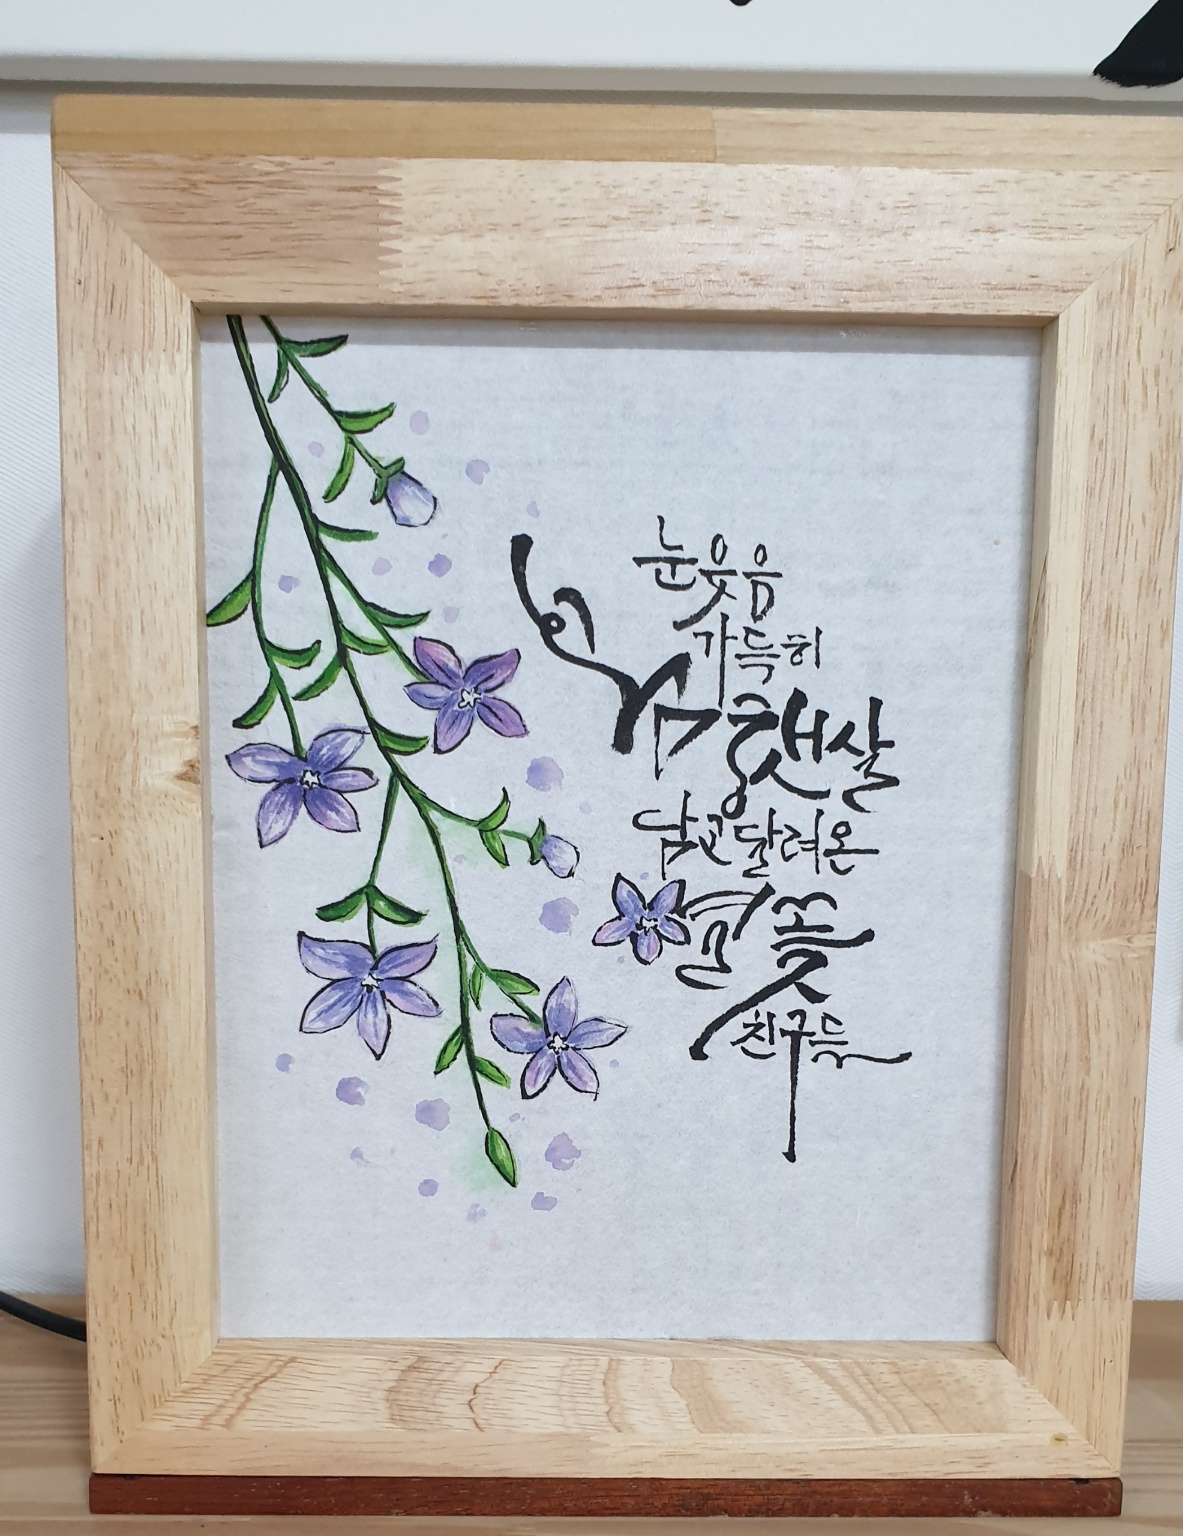 눈웃음
가득히
봄햇살
담고 달려온
친구들